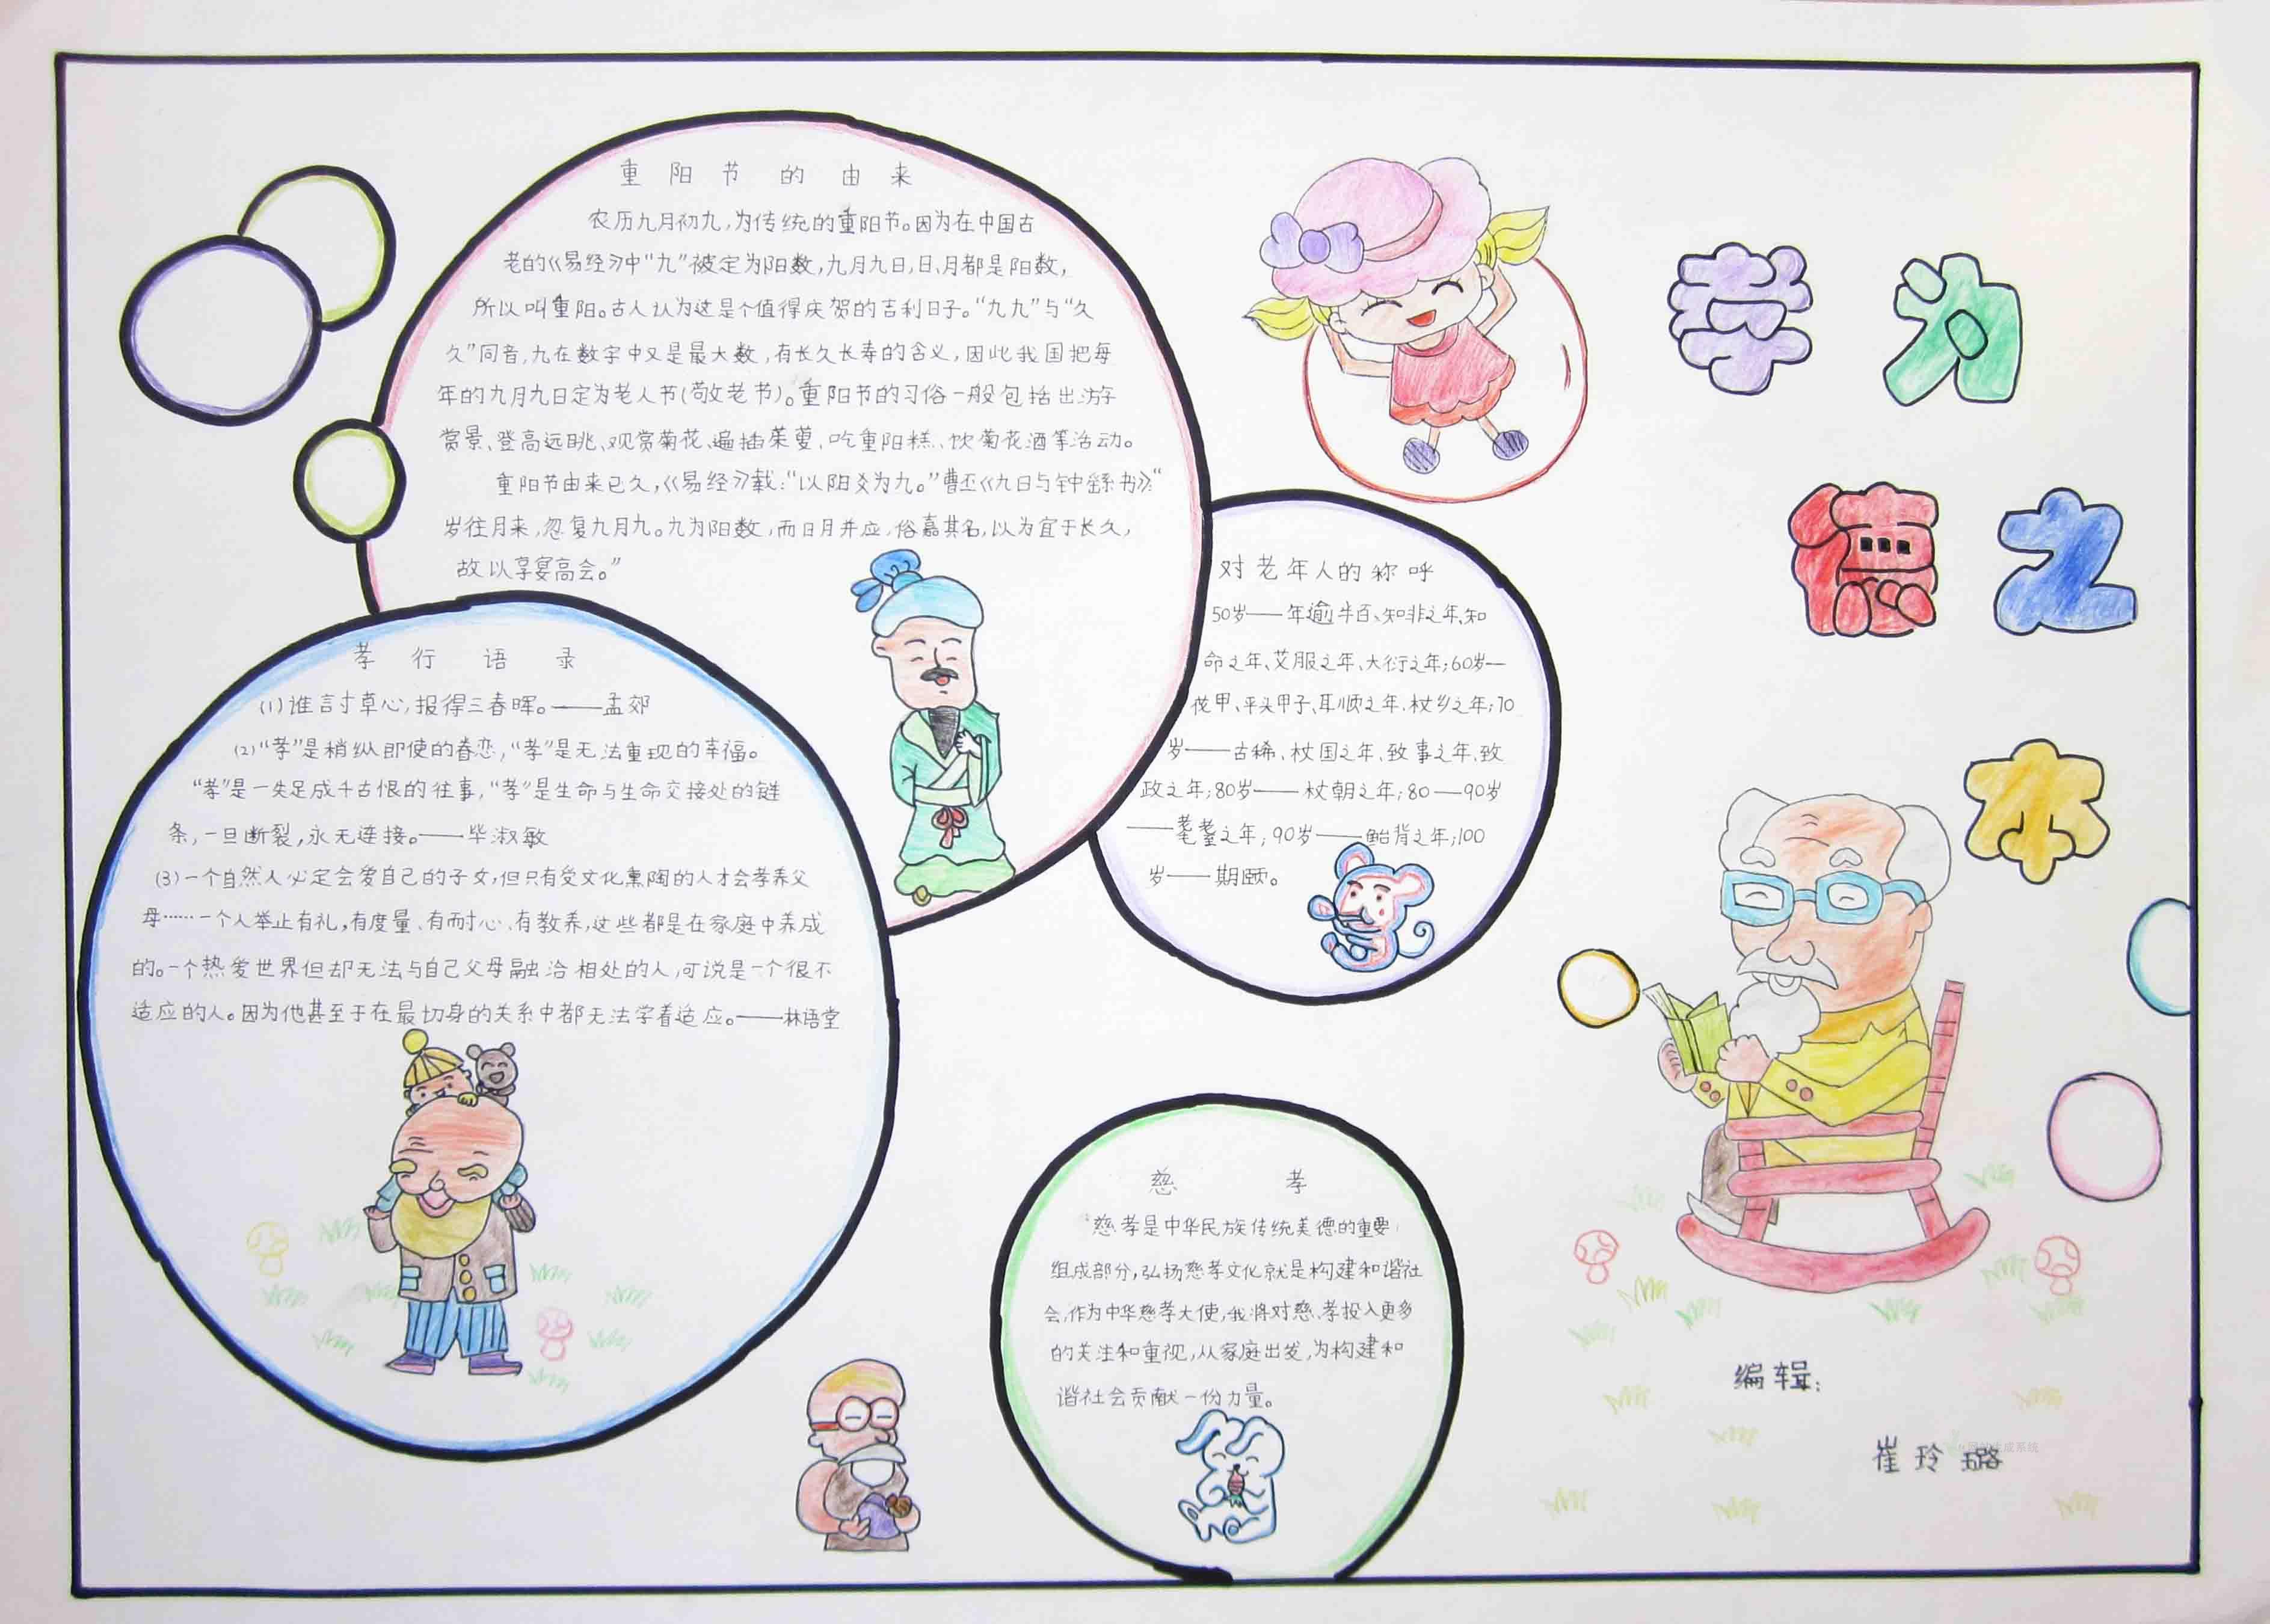 孝为
德之
本
重阳节的由来
农历九月初九,为传统的重阳节。因为在中国古
老的《易经》中“九”被定为阳数,九月九日,日、月都是阳数,
所以叫重阳。古人认为这是个值得庆贺的吉利日子。“九九”与“久
久”同音,九在数字中又是最大数,有长久长寿的含义,因此我国把每
年的九月九日定为老人节(敬老节)。重阳节的习俗一般包括出游
赏景、登高远眺、观赏菊花、遍插茱萸、吃重阳糕、饮菊花酒等活动。
重阳节由来已久,《易经》载:“以阳爻为九。”曹丕《九日与钟繇书》:“
岁往月来,忽复九月九。九为阳数,而日月并应,俗嘉其名,以为宜于长久,
故以享宴高会。”
孝行语录
(1)谁言寸草心,报得三春晖。——孟郊
(2)“孝”是稍纵即使的眷恋,“孝”是无法重现的幸福。
“孝”是一失足成千古恨的往事,“孝”是生命与生命交接处的链
条,一旦断裂,永无连接。——毕淑敏
(3)一个自然人必定会爱自己的子女,但只有受文化熏陶的人才会孝养父
母……一个人举止有礼,有度量、有耐心、有教养,这些都是在家庭中养成
的。一个热爱世界但却无法与自己父母融洽相处的人,可说是一个很不
适应的人。因为他甚至于在最切身的关系中都无法学着适应。——林语堂
对老年人的称呼
50岁——年逾半百、知非之年、知
命之年、艾服之年、大衍之年;60岁—
花甲、平头甲子、耳顺之年、杖乡之年;70
岁——古稀、杖国之年、致事之年、致
政之年;80岁——杖朝之年;80—90岁
——耄耋之年;90岁——鲐背之年;100
岁——期颐。
慈孝
慈孝是中华民族传统美德的重要
组成部分,弘扬慈孝文化就是构建和谐社
会,作为中华慈孝大使,我将对慈、孝投入更多
的关注和重视,从家庭出发,为构建和
谐社会贡献一份力量。
编辑:
崔玲璐